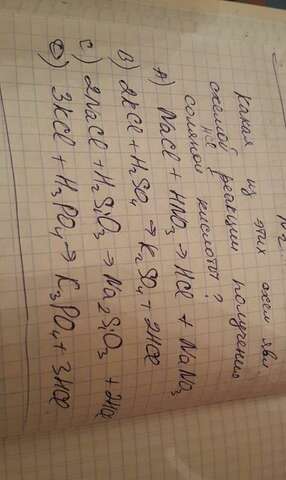 №2
Какая из этих схем явл.
схемой реакции получению
HCl
соляной кислоты?
A) NaCl + HNO₃ → HCl + NaNO₃
B) 2KCl + H₂SO₄ → K₂SO₄ + 2HCl
C) 2NaCl + H₂SiO₃ → Na₂SiO₃ + 2HCl
D) 3KCl + H₃PO₄ → K₃PO₄ + 3HCl